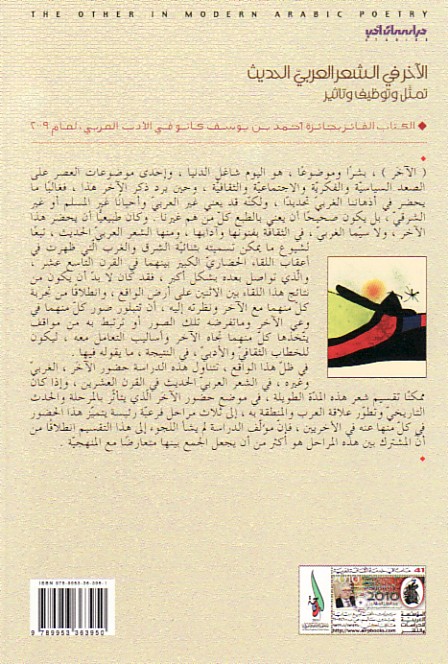 THE OTHER IN MODERN ARABIC POETRY
دراسات أدبية
STUDIES
الآخر في الشعر العربي الحديث
تمثّل وتوظيف وتأثير
الكتاب الفائز بجائزة أحمد بن يوسف كانو في الأدب العربي، لعام ٢٠٠٩
( الآخر ) ، بشرًا وموضوعًا ، هو اليوم شاغل الدنيا ، وإحدى موضوعات العصر على
الصعد السياسيّة والفكريّة والاجتماعيّة والثقافيّة ، وحين يرد ذكر الآخر هذا ، فغالبًا ما
يحضر في أذهاننا الغربيّ تحديدًا ، ولكنّه قد يعني غير العربيّ وأحيانًا غير المسلم أو غير
الشرقيّ ، بل يكون صحيحًا أن يعني بالطبع كلّ من هم غيرنا . وكان طبيعيًّا أن يحضر هذا
الآخر ، ولا سيّما الغربيّ ، في الثقافة بفنونها وآدابها ، ومنها الشعر العربيّ الحديث ، تبعًا
لشيوع ما يمكن تسميته بثنائية الشرق والغرب التي ظهرت في
أعقاب اللقاء الحضاريّ الكبير بينهما في القرن التاسع عشر ،
والذي تواصل بعده بشكل أكبر ، فقد كان لا بدّ أن يكون من
نتائج هذا اللقاء بين الاثنين على أرض الواقع ، وانطلاقًا من تجربة
كلّ منهما مع الآخر ونظرته إليه ، أن تتبلور صور كلّ منهما في
وعي الآخر وماتفرضه تلك الصور أو ترتبط به من مواقف
يتّخذها كلّ منهما تجاه الآخر وأساليب التعامل معه ، ليكون
للخطاب الثقافيّ والأدبيّ ، في النتيجة ، ما يقوله فيها .
في ظلّ هذا الواقع ، تتناول هذه الدراسة حضور الآخر ، الغربيّ
وغيره ، في الشعر العربيّ الحديث في القرن العشرين ، وإذا كان
ممكنًا تقسيم شعر هذه المدّة الطويلة ، في موضع حضور الآخر الذي يتأثر بالمرحلة والحدث
التاريخيّ وتطوّر علاقة العرب والمنطقة به ، إلى ثلاث مراحل فرعيّة رئيسة يتميّز هذا الحضور
في كلّ منها عنه في الأخريين ، فإن مؤلّف الدراسة لم يشأ اللجوء إلى هذا التقسيم انطلاقًا من
أنّ المشترك بين هذه المراحل هو أكثر من أن يجعل الجمع بينها متعارضًا مع المنهجيّة .
9 789953 363950
2010